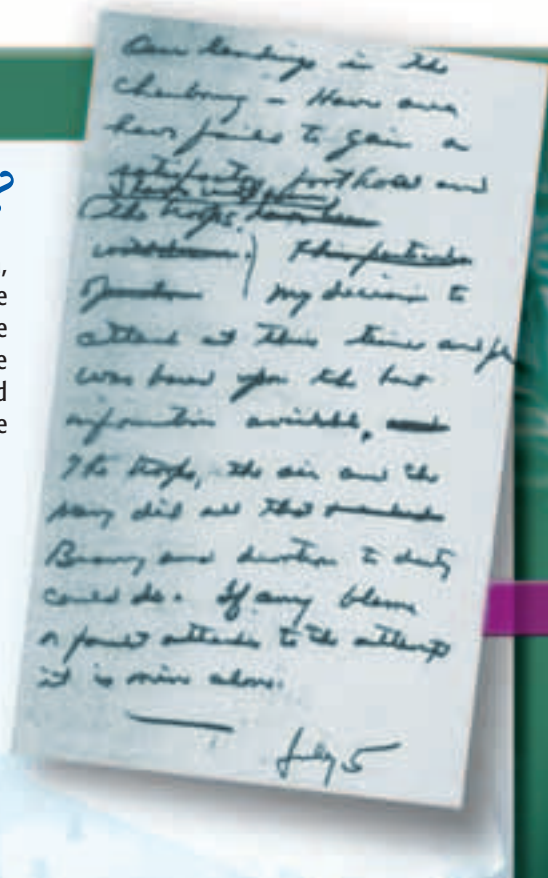 Our landings in the
Cherbourg - Havre area
have failed to gain a
satisfactory foothold and
the troops. have been
withdrawn. This particular
operation My decision to
attack at this time and pl
was based upon the best
information available, and
The troops, the air and the
Navy did all that
Bravery and devotion to duty
could do. If any blame
or fault attaches to the attempt
it is mine alone.
July 5